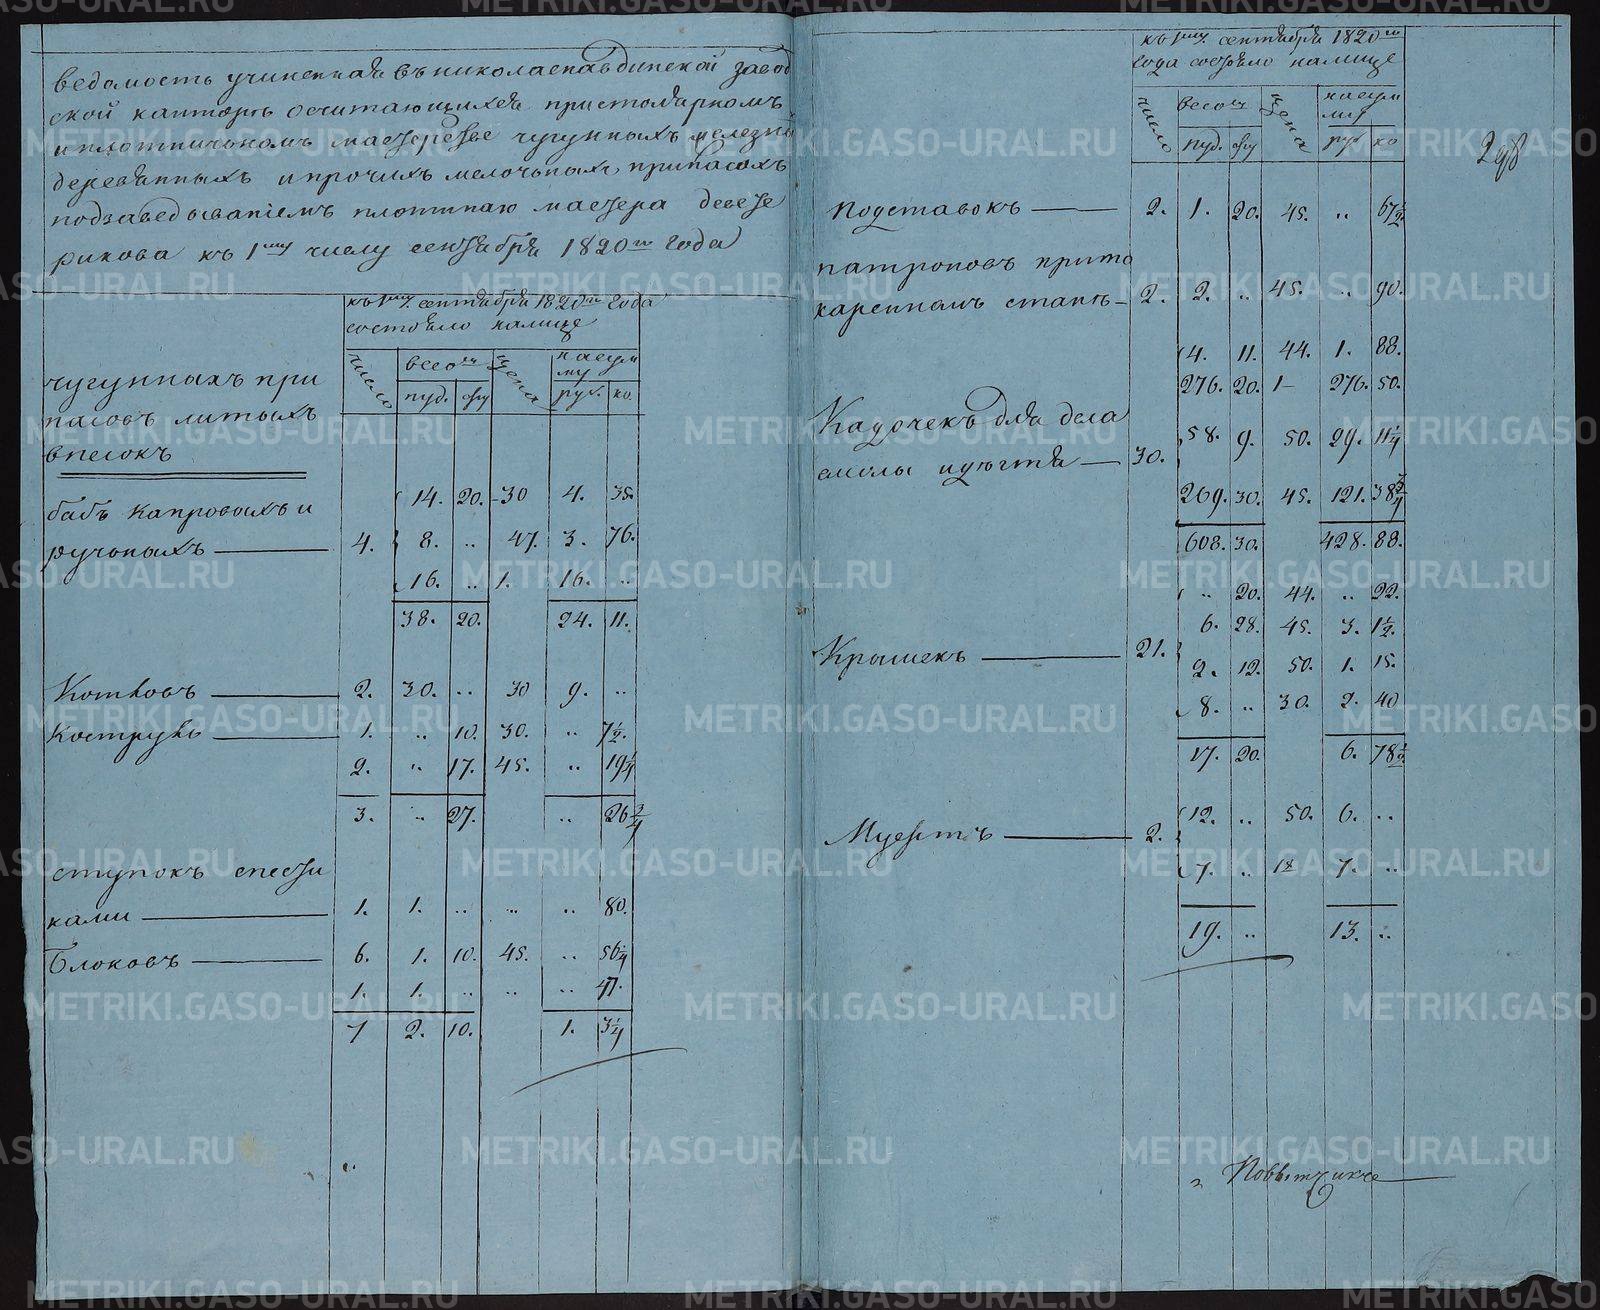 ведомость учиненная въ николаепавдинской завод
ской канторъ осчитающихся пристолярномъ
иплотничномъ мастерстве чугунныхъ железны
деревянныхъ ипрочихъ мелочьныхъ припасахъ
подзаведываніемъ плотнаго мастера
рикова къ 1му числу сентября 1820го года
къ 1му сентября 1820го года
состояло налице
число весомъ цена насум
му
пуд. фу руб. ко.
чугунныхъ при
пасовъ литыхъ
впесокъ
бабъ капровыхъ и
14. 20. 30 4. 35.
ручьныхъ 4. 8. .. 47. 3. 76.
16. .. 1. 16. ..
38. 20. 24. 11.
Котловъ 2. 30. .. 30 9. ..
Кострукъ 1. .. 10. 30. .. 7½.
2. .. 17. 45. .. 19¼
3. .. 27. .. 26¾
ступокъ спести
ками 1. 1. .. .. .. 80.
Блоковъ 6. 1. 10. 45. .. 56¼
1. 1. .. .. .. 47.
7 2. 10. 1. 3¼
298
къ 1му сентября 1820го
года состояло налице
число весомъ цена насум
му
пуд. фу ру ко
подставокъ 2. 1. 20. 45. .. 67½
патроновъ прито
каренномъ станъ 2. 2. .. 45. .. 90.
4. 11. 44. 1. 88.
276. 20. 1 276. 50.
Кадочекъ для дела
58. 9. 50. 29. 11¼
смолы идегтя 30.
269. 30. 45. 121. 38¾
608. 30. 428. 88.
.. 20. 44. .. 22.
6. 28. 45. 3. 1½.
Крышекъ 21.
2. 12. 50. 1. 15.
8. .. 30. 2. 40
17. 20. 6. 78½
12. .. 50. 6. ..
Муфтъ 2.
7. .. 1 7. ..
19. .. 13. ..
Повытчикъ
METRIKI.GASO-URAL.RU